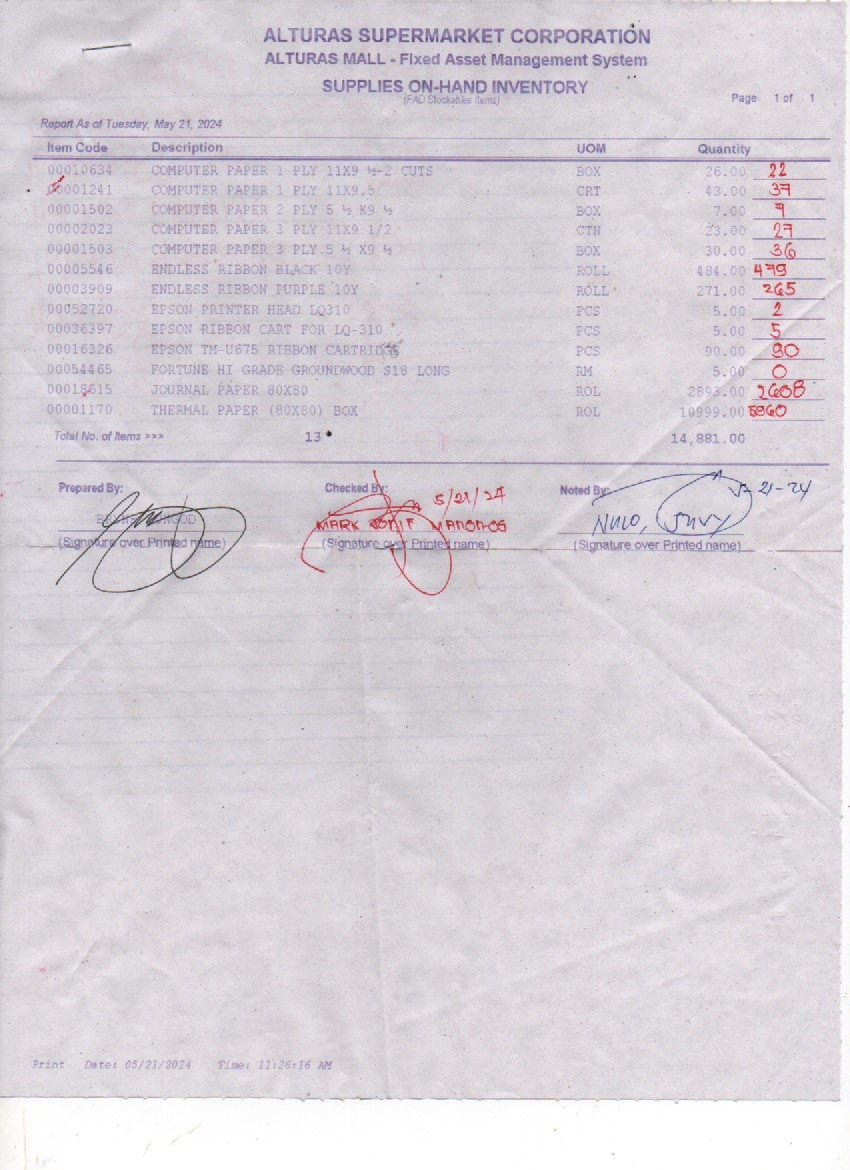 ALTURAS SUPERMARKET CORPORATION
ALTURAS MALL - Fixed Asset Management System
SUPPLIES ON-HAND INVENTORY
(FAD Stockables Items)
Page 1 of 1
Report As of Tuesday, May 21, 2024
Item Code Description UOM Quantity
00010634 COMPUTER PAPER 1 PLY 11X9 ½-2 CUTS BOX 26.00 22
00001241 COMPUTER PAPER 1 PLY 11X9.5 CRT 43.00 37
00001502 COMPUTER PAPER 2 PLY 5 ½ X9 ½ BOX 7.00 7
00002023 COMPUTER PAPER 3 PLY 11X9 1/2 CTN 23.00 27
00001503 COMPUTER PAPER 3 PLY 5 ½ X9 ½ BOX 30.00 36
00005546 ENDLESS RIBBON BLACK 10Y ROLL 484.00 479
00003909 ENDLESS RIBBON PURPLE 10Y ROLL 271.00 265
00052720 EPSON PRINTER HEAD LQ310 PCS 5.00 2
00036397 EPSON RIBBON CART FOR LQ-310 PCS 5.00 5
00016326 EPSON TM-U675 RIBBON CARTRIDGE PCS 90.00 90
00054465 FORTUNE HI GRADE GROUNDWOOD S18 LONG RM 5.00 0
00018615 JOURNAL PAPER 80X80 ROL 2893.00 2608
00001170 THERMAL PAPER (80X80) BOX ROL 10999.00
Total No. of Items >>> 13 14,881.00
Prepared By: Checked By: 5/21/24 Noted By: 5-21-24
MARK
(Signature over Printed name) (Signature over Printed name) (Signature over Printed name)
Print Date: 05/21/2024 Time: 11:26:16 AM